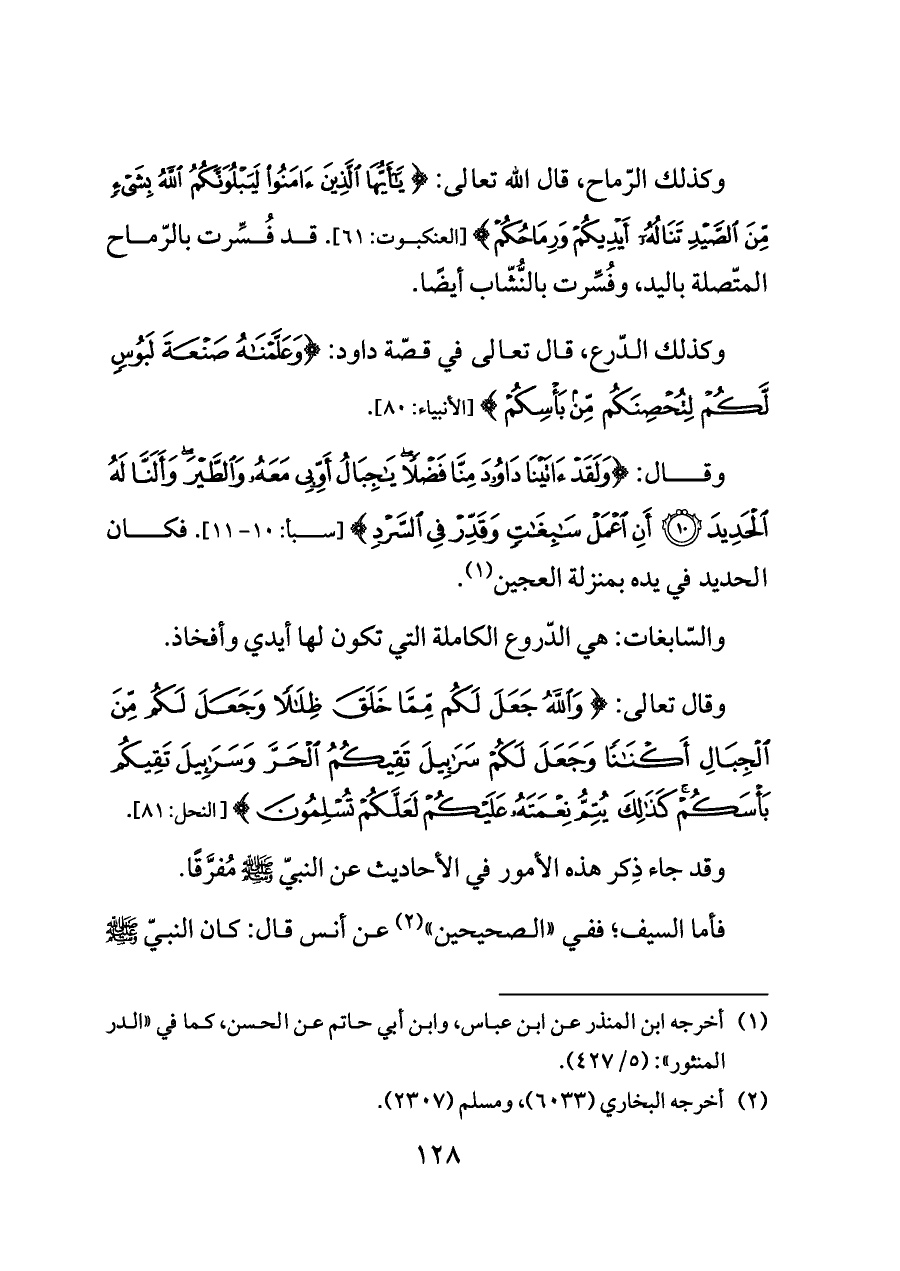 وكذلك الرّماح، قال الله تعالى: ﴿ يَٰٓأَيُّهَا ٱلَّذِينَ ءَامَنُوا۟ لَيَبْلُوَنَّكُمُ ٱللَّهُ بِشَىْءٍ
مِّنَ ٱلصَّيْدِ تَنَالُهُۥٓ أَيْدِيكُمْ وَرِمَاحُكُمْ ﴾ [العنكبوت: ٦١]. قد فُسِّرت بالرّماح
المتّصلة باليد، وفُسِّرت بالنُّشّاب أيضًا.
وكذلك الدّرع، قال تعالى في قصّة داود: ﴿وَعَلَّمْنَٰهُ صَنْعَةَ لَبُوسٍ
لَّكُمْ لِتُحْصِنَكُم مِّنۢ بَأْسِكُمْ ﴾ [الأنبياء: ٨٠].
وقال: ﴿وَلَقَدْ ءَاتَيْنَا دَاوُۥدَ مِنَّا فَضْلًا ۖ يَٰجِبَالُ أَوِّبِى مَعَهُۥ وَٱلطَّيْرَ ۖ وَأَلَنَّا لَهُ
ٱلْحَدِيدَ ۝١٠ أَنِ ٱعْمَلْ سَٰبِغَٰتٍ وَقَدِّرْ فِى ٱلسَّرْدِ ﴾ [سبأ: ١٠-١١]. فكان
الحديد في يده بمنزلة العجين(١).
والسّابغات: هي الدّروع الكاملة التي تكون لها أيدي وأفخاذ.
وقال تعالى: ﴿ وَٱللَّهُ جَعَلَ لَكُم مِّمَّا خَلَقَ ظِلَٰلًا وَجَعَلَ لَكُم مِّنَ
ٱلْجِبَالِ أَكْنَٰنًا وَجَعَلَ لَكُمْ سَرَٰبِيلَ تَقِيكُمُ ٱلْحَرَّ وَسَرَٰبِيلَ تَقِيكُم
بَأْسَكُمْ ۚ كَذَٰلِكَ يُتِمُّ نِعْمَتَهُۥ عَلَيْكُمْ لَعَلَّكُمْ تُسْلِمُونَ ﴾ [النحل: ٨١].
وقد جاء ذِكر هذه الأمور في الأحاديث عن النبيّ ﷺ مُفرَّقًا.
فأما السيف؛ ففي «الصحيحين»(٢) عن أنس قال: كان النبيّ ﷺ
(١) أخرجه ابن المنذر عن ابن عباس، وابن أبي حاتم عن الحسن، كما في «الدر
المنثور»: (٥/ ٤٢٧).
(٢) أخرجه البخاري (٦٠٣٣)، ومسلم (٢٣٠٧).
١٢٨